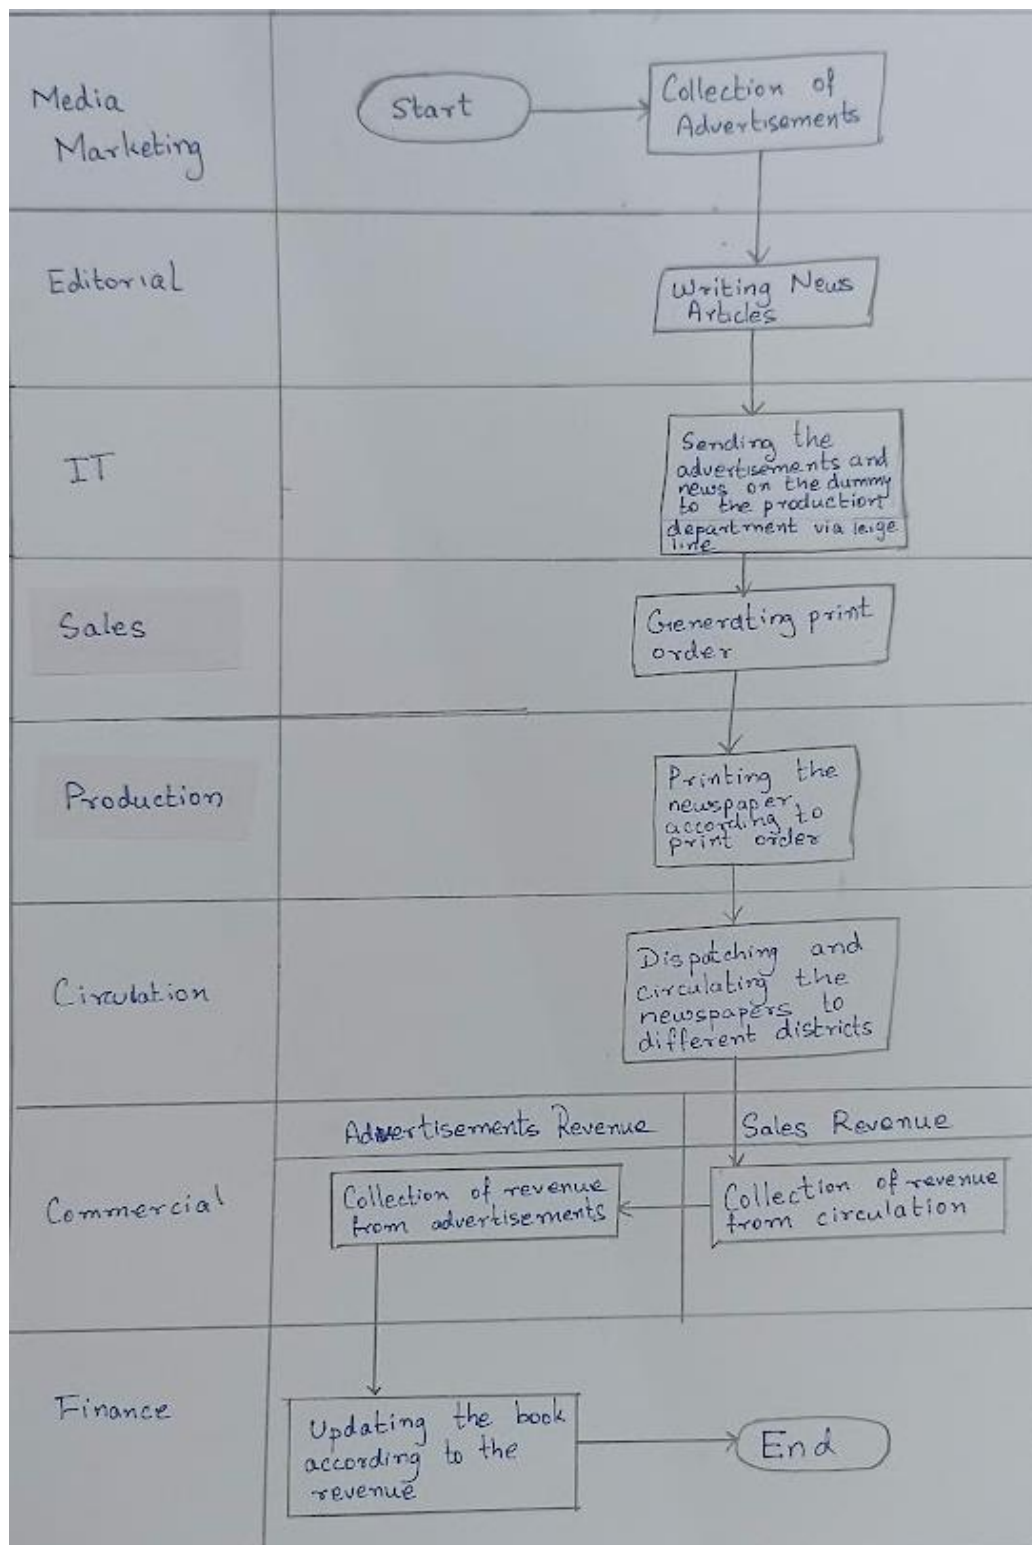 Media
Marketing
Start
Collection of
Advertisements
Editorial
Writing News
Articles
IT
Sending the
advertisements and
news on the dummy
to the production
department via
line
Sales
Generating print
order
Production
Printing the
newspaper
according to
print order
Circulation
Dispatching and
circulating the
newspapers to
different districts
Advertisements Revenue
Sales Revenue
Commercial
Collection of revenue
from advertisements
Collection of revenue
from circulation
Finance
Updating the book
according to the
revenue
End